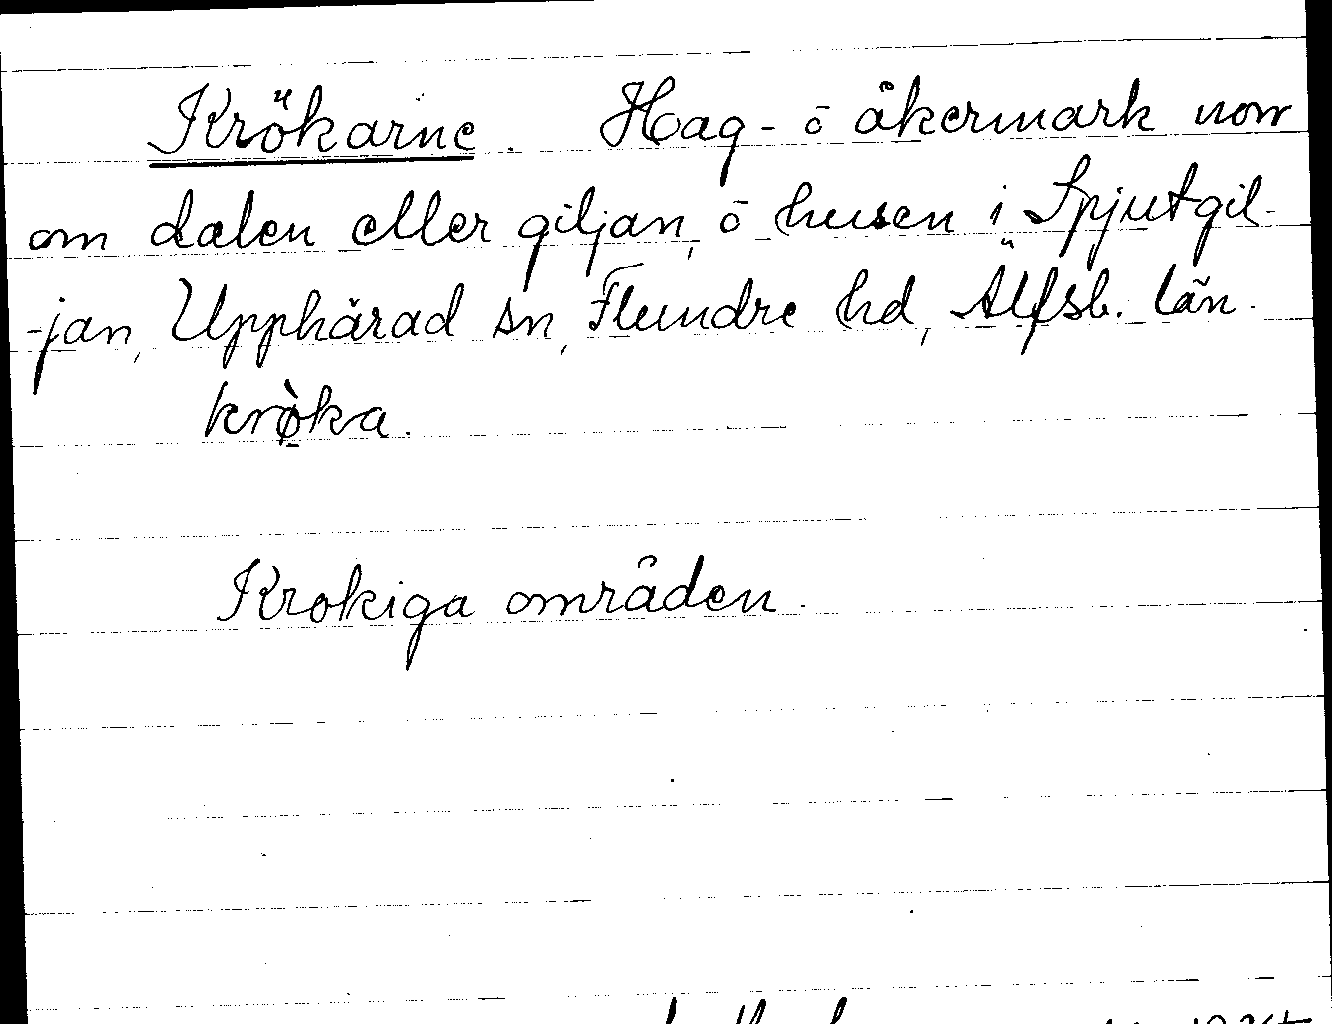 Krökarne. Hag- ō åkermark norr
om dalen eller giljan, ō husen i Spjutgil-
-jan, Upphärad sn, Flundre hd, Älfsb. län.
krø̀ka.
Krokiga områden.